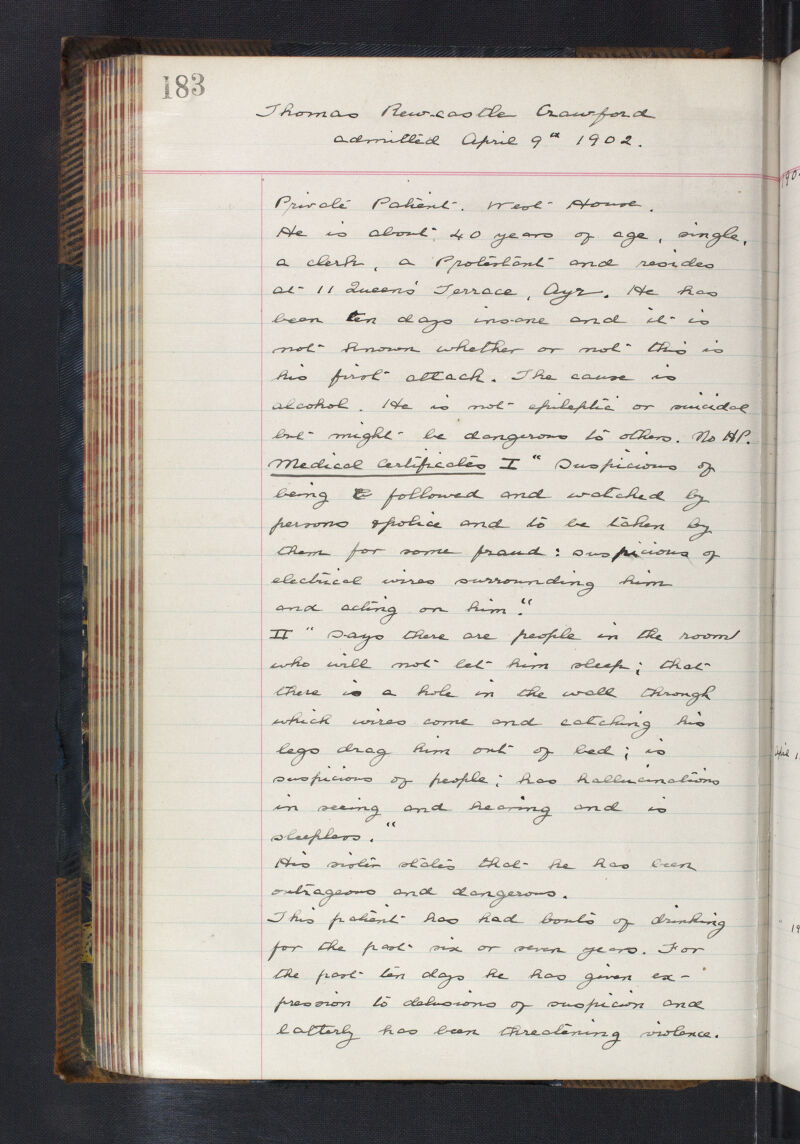 183
Thomas Rewcastle Crawford
admitted April 9th 1902.
Private Patient. West House.
He is about 40 years of age, single,
a clerk, a Protestant and resides
at 11 Queens' Terrace, Ayr. He has
been ten days insane and it is
not known whether or not this is
his first attack. The cause is
alcohol. He is not epileptic or suicidal
but might be dangerous to others. No HP.
Medical Certificates I " Suspicious of
being followed and watched by
persons & police and to be taken by
them for some fraud: suspicious of
electrical wires surrounding him
and acting on him."
II " Says there are people in the room
who will not let him sleep; that
there is a hole in the wall through
which wires come and catching his
legs drag him out of bed; is
suspicious of people; has hallucinations
in seeing and hearing and is
sleepless."
His sister states that he has been
outrageous and dangerous.
This patient has had bouts of drinking
for the past six or seven years. For
the past ten days he has given ex-
pression to delusions of suspicion and
latterly has been threatening violence.
190
April 1
" 19